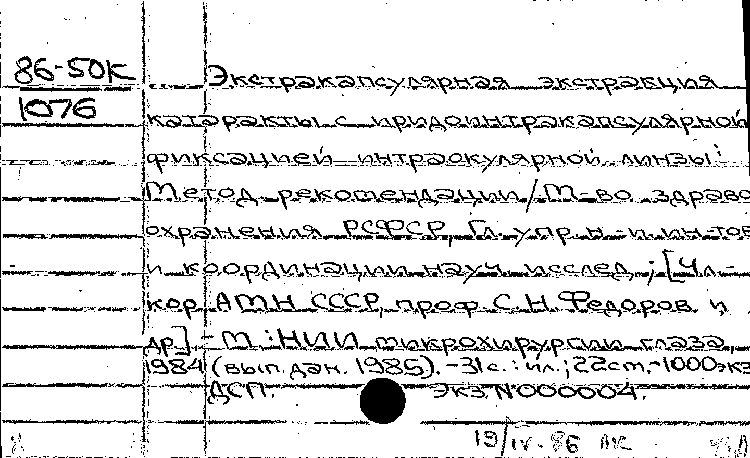 86-50К
1076
Экстракапсулярная экстракция
катаракты с иридоинтракапсулярной
фиксацией интраокулярной линзы:
Метод. рекомендации/М-во здраво-
охранения РСФСР, Гл. упр. н.-и. ин-тов
и координации науч. исслед.; [Чл.-
кор. АМН СССР, проф. С.Н. Федоров и
др.] - М.: НИИ микрохирургии глаза,
1984 (вып. дан. 1985). - 31 с.: ил.; 22 см. - 1000 экз
ДСП. Экз. N 000004.
19/IV-86